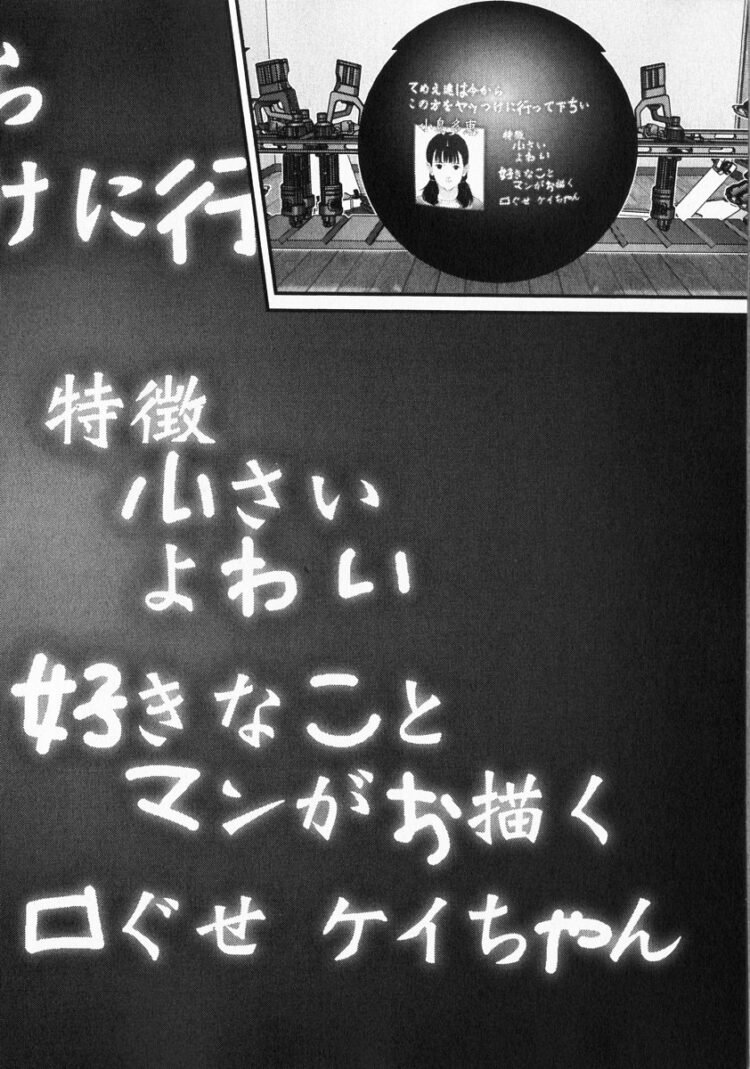 てめえ達は今から
この方をヤッつけに行って下ちい
小島多恵
特徴
小さい
よわい
好きなこと
マンがお描く
口ぐせ ケイちゃん
ら
けに行
特徴
小さい
よわい
好きなこと
マンがお描く
口ぐせ ケイちゃん